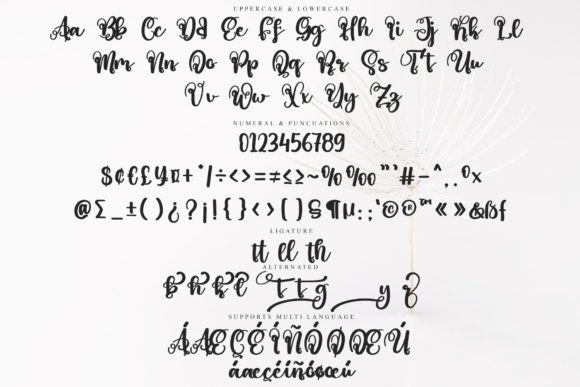 UPPERCASE & LOWERCASE
Aa Bb Cc Dd Ee Ff Gg Hh Ii Jj Kk Ll
Mm Nn Oo Pp Qq Rr Ss Tt Uu
Vv Ww Xx Yy Zz
NUMERAL & PUNCUATIONS
0123456789
$¢€£¥¤+*/÷<>=≠≤≥~%‰"'#-^,.ºx
@Σ_±()¿?¡!{}<>[]§¶µ:;'©®™«»&ßf
LIGATURE
tt ell th
ALTERNATED
SUPPORTS MULTI LANGUAGE
ÁÆÇÉÍÑÓØŒÚ
áæçéíñóøœú